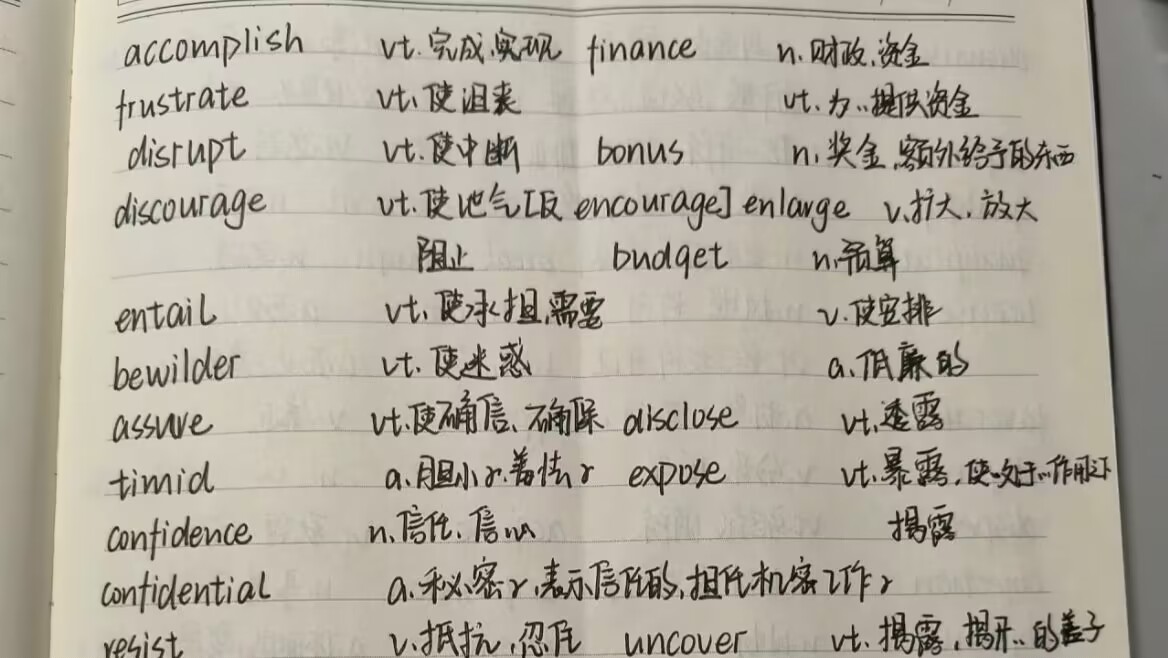 accomplish vt. 完成,实现 finance n. 财政,资金
frustrate vt. 使沮丧 vt. 为..提供资金
disrupt vt. 使中断 bonus n. 奖金,额外给予的东西
discourage vt. 使泄气[反 encourage] enlarge v. 扩大,放大
阻止 budget n. 预算
entail vt. 使承担,需要 v. 使安排
bewilder vt. 使迷惑 a. 低廉的
assure vt. 使确信、确保 disclose vt. 透露
timid a. 胆小的,羞怯的 expose vt. 暴露,使..处于..作用下
confidence n. 信任,信心 揭露
confidential a. 秘密的,表示信任的,担任机密工作的
resist v. 抵抗,忍住 uncover vt. 揭露,揭开..的盖子